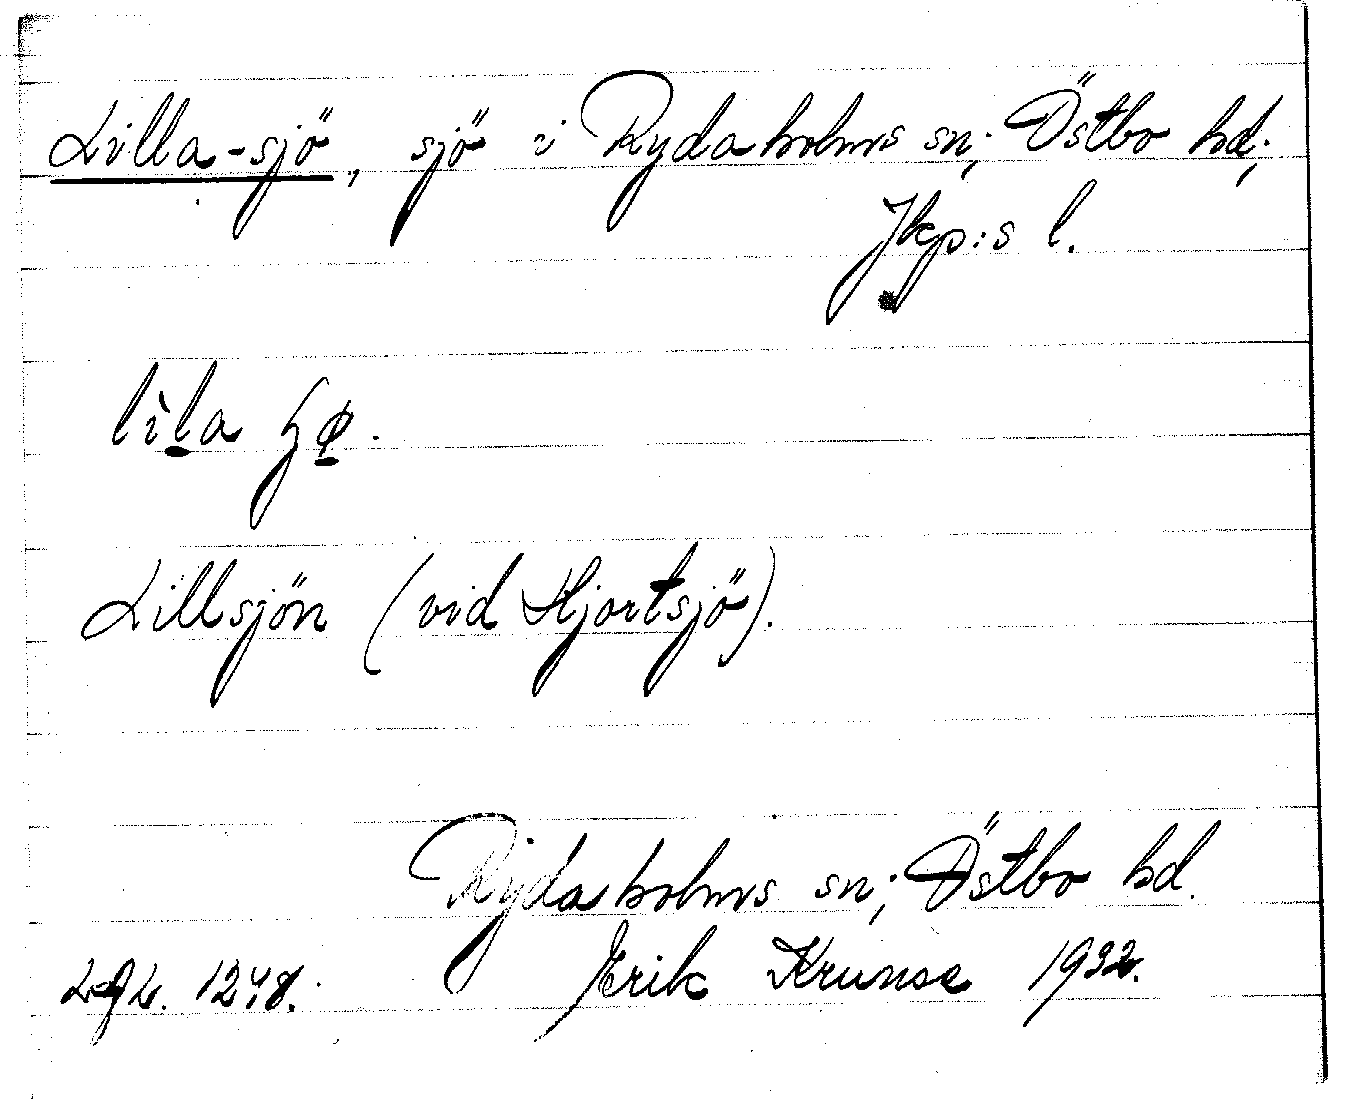 Lilla-sjö, sjö i Rydaholms sn; Östbo hd;
Jkp:s l.
lìla ɧø.
Lillsjön (vid Hjortsjö).
Rydaholms sn; Östbo hd.
Erik Krunse 1932.